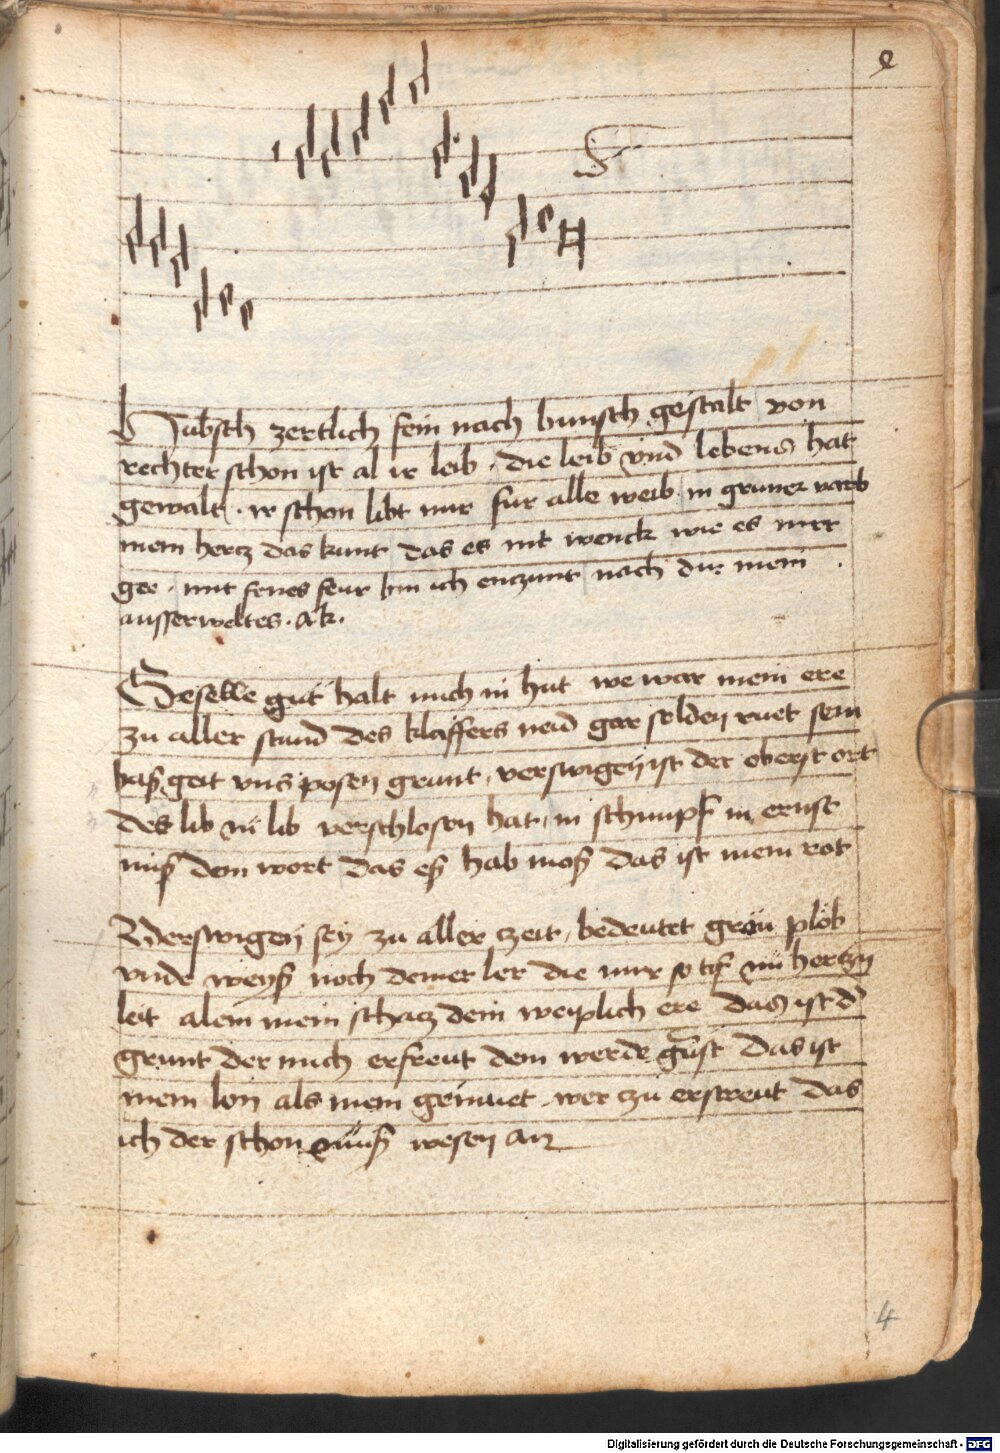 Hubsch zertlich fein nach bunsch gestalt von
rechter schon ist al ir leib . die leib vnd lebens hat
gewalt . ir schon libt mir fur alle weib in gruner varb
mein hertz das kunt das es nit wenck wie es mir
gee . mit senes feur bin ich enczunt nach dir mein
ausserweltes . ak .
Geselle gut halt mich in hut we war mein ere
zu aller stund des klaffers neid gar selden ruet sein
has geit vns posen grunt , verswigen ist der oberst ort
des lib in lib verschlosen hat , in schimpf in ernst
mis dem wort das es hab mos das ist mein rot
Verswigen sey zu aller czeit , bedeutet grou plob
vnde weys noch deiner ler die mir so tif im hertzn
leit alein mein schatz dein weiplich ere das ist d
grunt der mich erfreut dem werde gust das ist
mein lon als mein gemuet . wer zu erstreut das
ich der schon mus wesen an
4
Digitalisierung gefördert durch die Deutsche Forschungsgemeinschaft - DFG